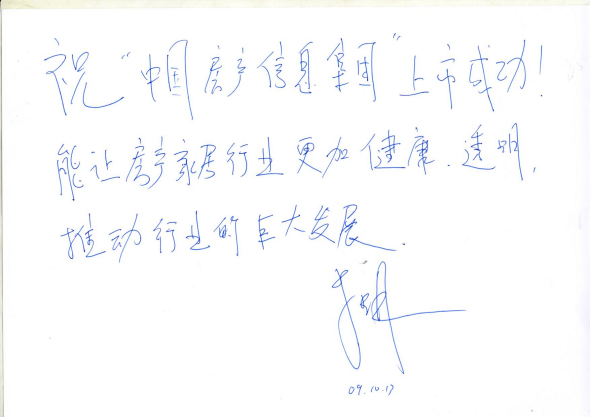 祝“中国房产信息集团”上市成功!
能让房产家居行业更加健康、透明,
推动行业的巨大发展.
09.10.17